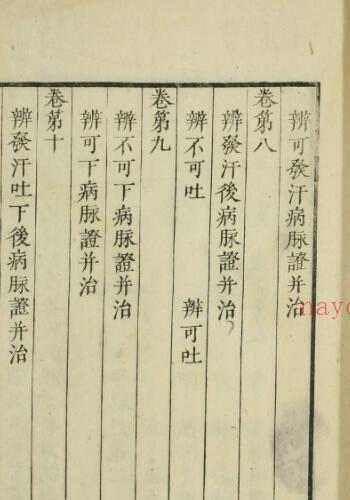 辨可發汗病脉證并治
卷第八
辨發汗後病脉證并治
辨不可吐　辨可吐
卷第九
辨不可下病脉證并治
辨可下病脉證并治
卷第十
辨發汗吐下後病脉證并治
nayo